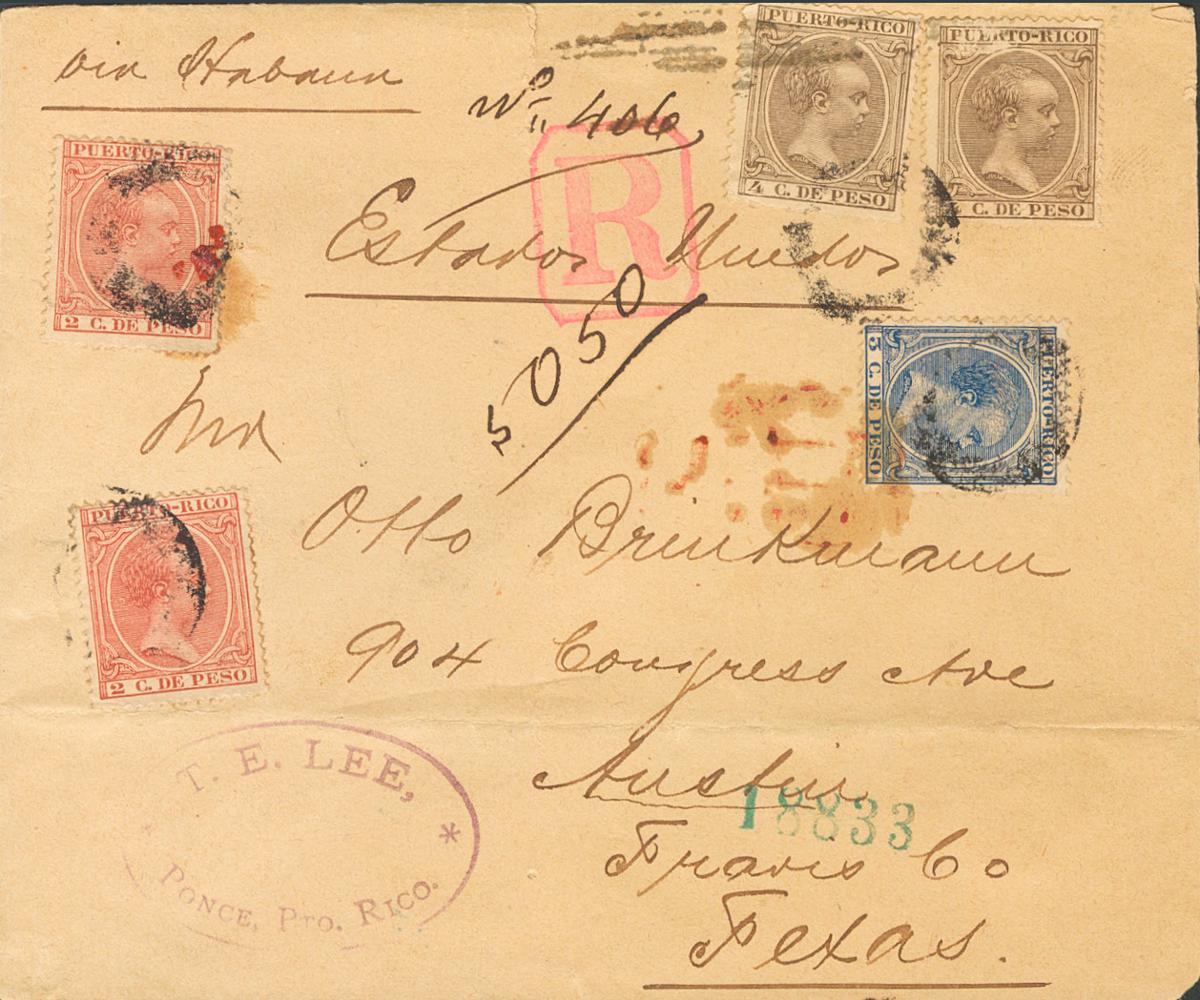 via Habana
Nº 406
PUERTO-RICO
4 C. DE PESO
PUERTO-RICO
C. DE PESO
PUERTO-RICO
2 C. DE PESO
R
Estados Unidos
5050
PUERTO-RICO
5 C. DE PESO
PUERTO-RICO
2 C. DE PESO
Otto Brinkmann
904 Congress Ave
Austin
18833
Travis Co
Texas.
T. E. LEE,
*
PONCE, Pto. RICO.